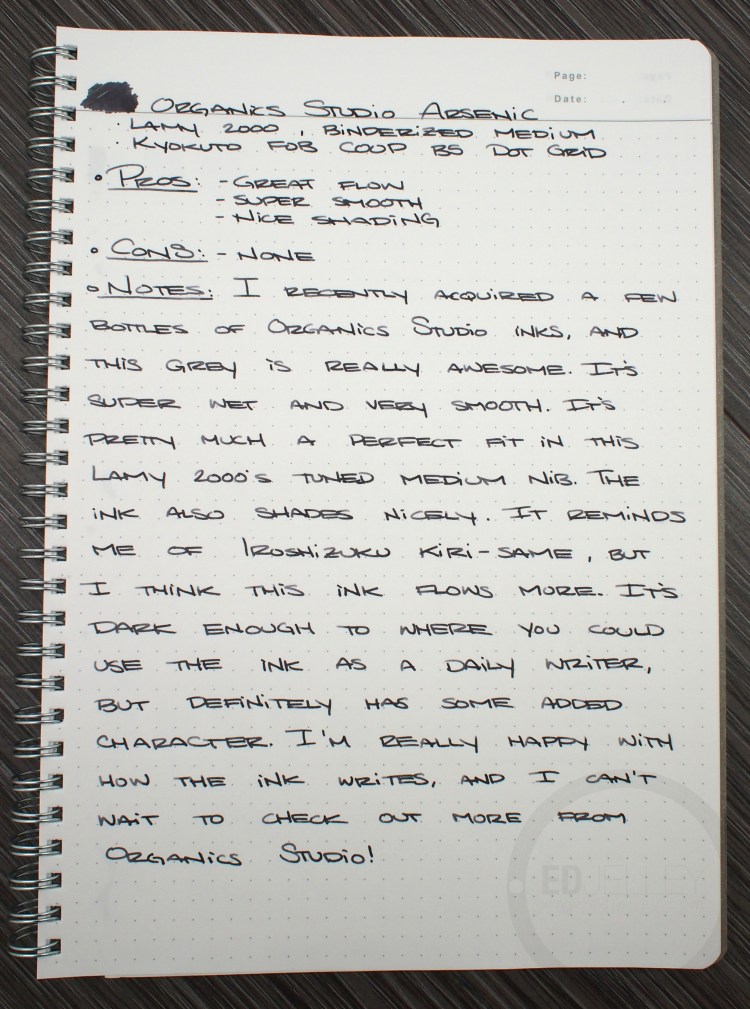 Page:
Date:
Organics Studio Arsenic
· Lamy 2000, Binderized Medium
· Kyokuto FOB COOP B5 Dot Grid
• Pros: - Great Flow
- Super Smooth
- Nice Shading
• Cons: - None
• Notes: I recently acquired a few
bottles of Organics Studio inks, and
this grey is really awesome. It's
super wet and very smooth. It's
pretty much a perfect fit in this
Lamy 2000's tuned medium nib. The
ink also shades nicely. It reminds
me of Iroshizuku Kiri-same, but
I think this ink flows more. It's
dark enough to where you could
use the ink as a daily writer,
but definitely has some added
character. I'm really happy with
how the ink writes, and I can't
wait to check out more from
Organics Studio!
ED JELLEY